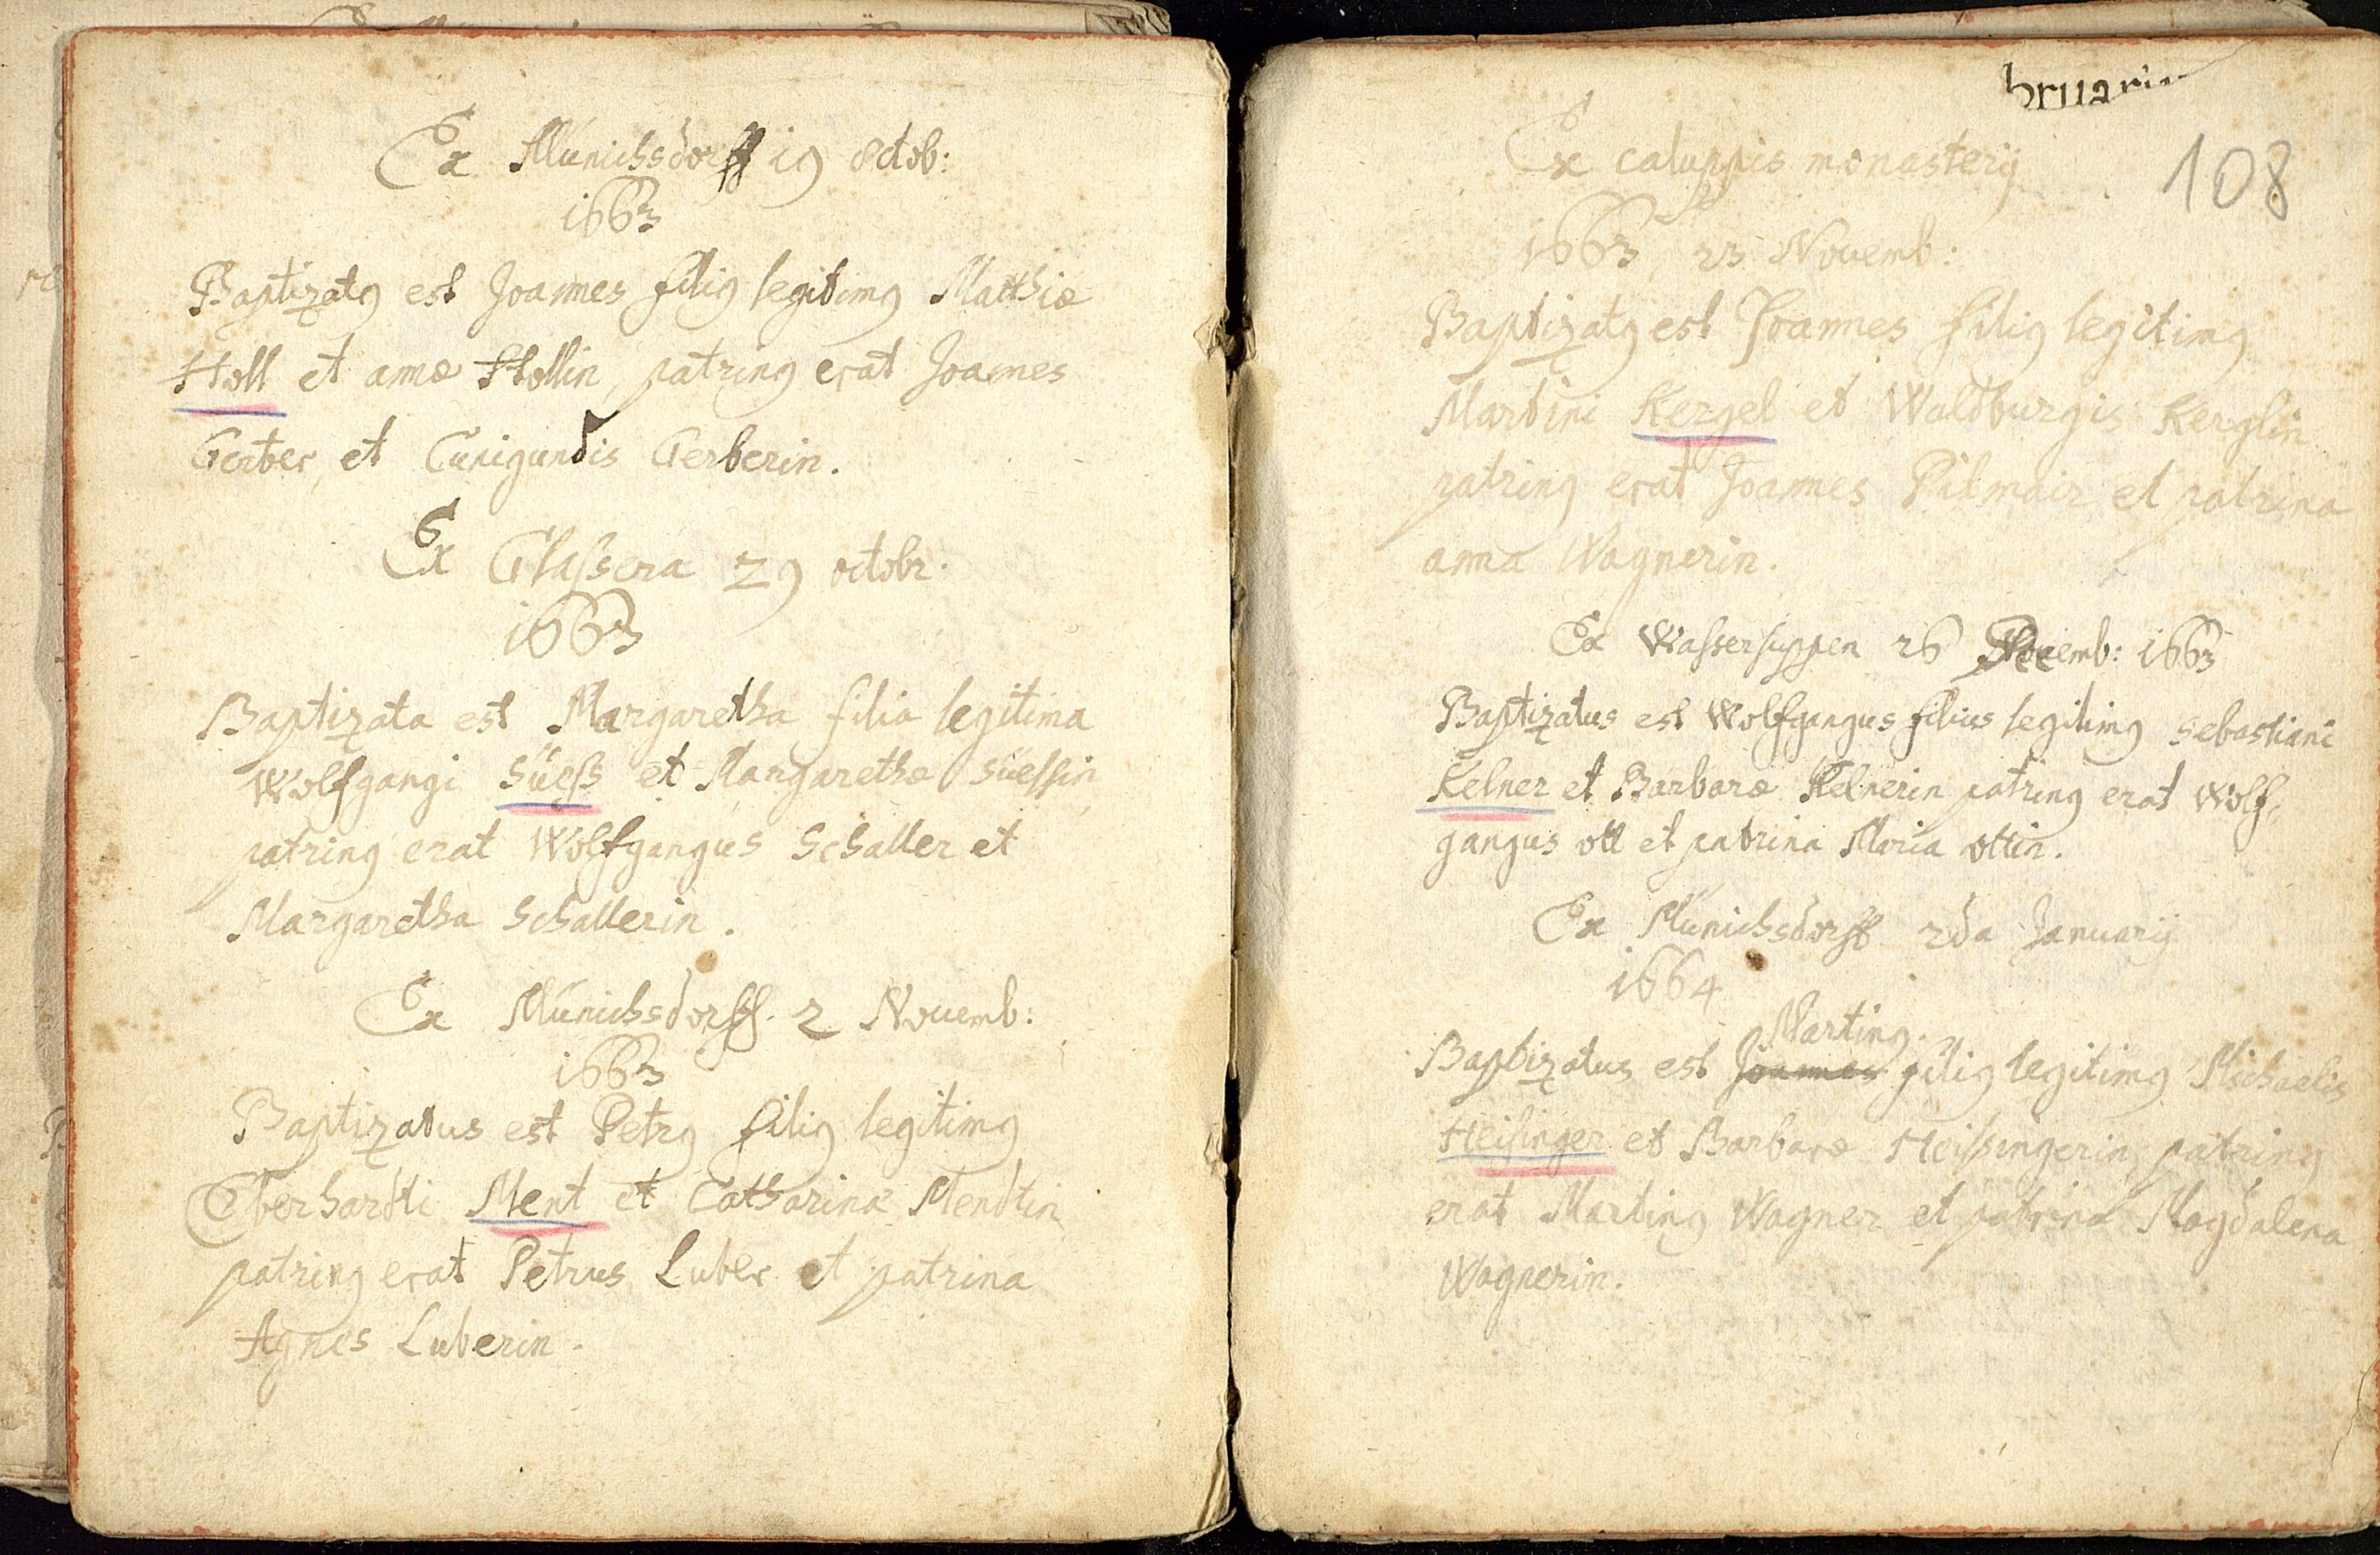 Ex Münichsdorff 19 8ctob:
1663
Baptizatꝯ est Joannes filiꝯ legitimꝯ Matthiæ
Holl et annæ Hollin patrinꝯ erat Joannes
Gerber et Cunigundis Gerberin.
Ex Glassera 29 octobr.
1663
Baptizata est Margaretha filia legitima
Wolfgangi Süess et Margarethæ Süessin
patrinꝯ erat Wolfgangus Schaller et
Margaretha Schallerin.
Ex Münichsdorff. 2 Nouemb:
1663
Baptizatus est Petrꝯ filiꝯ legitimꝯ
Eberhardti Ment et Catharinæ Mendtin
patrinꝯ erat Petrus Luber et patrina
Agnes Luberin.
bruari
108
Ex caluppis monasterij
1663 23 Nouemb:
Baptizatꝯ est Joannes filiꝯ legitimꝯ
Martini Kergel et Waldburgis Kerglin
patrinꝯ erat Joannes Pilmair et patrina
anna Wagnerin.
Ex Wassersuppen 26 1663
Baptizatus est Wolfgangus filius legitimꝯ Sebastiani
Kelner et Barbaræ Kelnerin patrinꝯ erat Wolf,
gangus ott et patrina Maria ottin.
Ex Münichsdorff 2da Januarij
1664
Martinꝯ.
Baptizatus est Joannes filiꝯ legitimꝯ Michaelis
Heisinger et Barbaræ Heissingerin patrinꝯ
erat Martinꝯ Wagner et patrina Magdalena
Wagnerin.